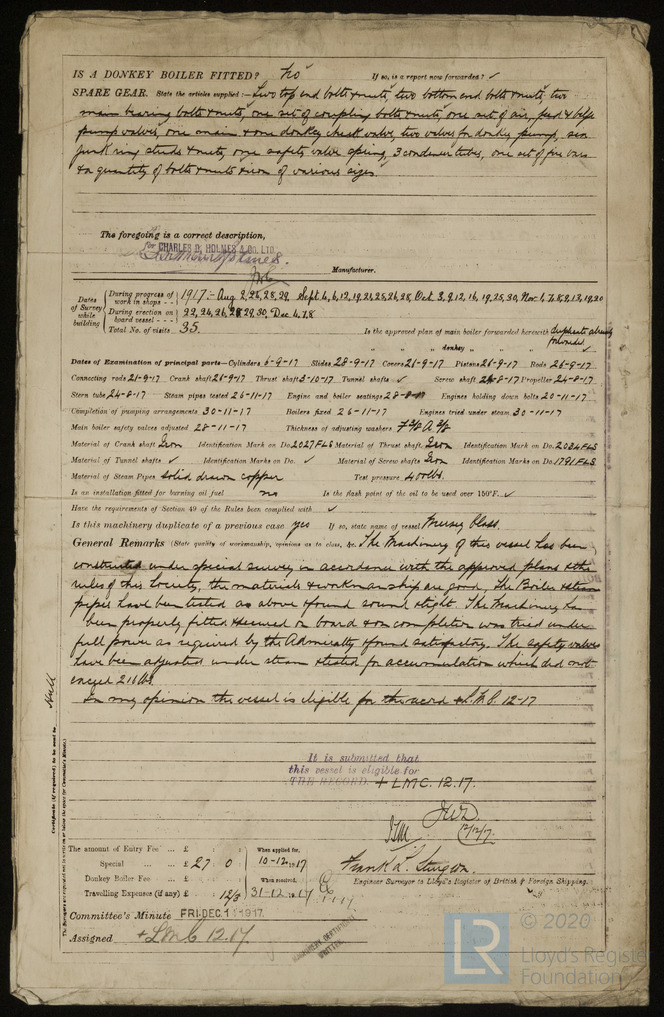 IS A DONKEY BOILER FITTED? No If so, is a report now forwarded? ✓
SPARE GEAR. State the articles supplied:— Two top end bolts & nuts, two bottom end bolts & nuts, two
main bearing bolts & nuts, one set of coupling bolts & nuts, one set of air, feed & bilge
pump valves, one main & one donkey check valve, two valves for donkey pump, six
junk ring studs & nuts, one safety valve spring, 3 condenser tubes, one set of fire bars
& a quantity of bolts & nuts & iron of various sizes.
The foregoing is a correct description,
for CHARLES D. HOLMES & CO. LTD.
Manufacturer.
Dates of Survey while building
During progress of work in shops - - 1917:- Aug 2, 26, 28, 29, Sept. 4, 6, 12, 19, 21, 25, 26, 28, Oct 3, 9, 12, 16, 19, 25, 30, Nov. 1, 7, 8, 12, 13, 19, 20
During erection on board vessel - - - 22, 24, 26, 28, 29, 30, Dec 4, 7, 8
Total No. of visits 35. Is the approved plan of main boiler forwarded herewith duplicate already forwarded
" " " donkey " " " ✓
Dates of Examination of principal parts—Cylinders 6-9-17 Slides 28-9-17 Covers 21-9-17 Pistons 26-9-17 Rods 26-9-17
Connecting rods 21-9-17 Crank shaft 26-9-17 Thrust shaft 3-10-17 Tunnel shafts ✓ Screw shaft 24-8-17 Propeller 24-8-17
Stern tube 24-8-17 Steam pipes tested 26-11-17 Engine and boiler seatings 28-8-17 Engines holding down bolts 20-11-17
Completion of pumping arrangements 30-11-17 Boilers fixed 26-11-17 Engines tried under steam 30-11-17
Main boiler safety valves adjusted 28-11-17 Thickness of adjusting washers
Material of Crank shaft Iron Identification Mark on Do. 2027FLS Material of Thrust shaft Iron Identification Mark on Do. 2034FLS
Material of Tunnel shafts ✓ Identification Marks on Do. ✓ Material of Screw shafts Iron Identification Marks on Do. 1791FLS
Material of Steam Pipes solid drawn copper Test pressure 400 lbs.
Is an installation fitted for burning oil fuel no Is the flash point of the oil to be used over 150°F. ✓
Have the requirements of Section 49 of the Rules been complied with ✓
Is this machinery duplicate of a previous case yes If so, state name of vessel Mersey Class.
General Remarks (State quality of workmanship, opinions as to class, &c. The Machinery of this vessel has been
constructed under special survey in accordance with the approved plans & the
rules of this Society, the materials & workmanship are good, The Boiler & steam
pipes have been tested as above & found sound & tight. The Machinery has
been properly fitted & secured on board & on completion was tried under
full power as required by the Admiralty & found satisfactory. The safety valves
have been adjusted under steam & tested for accumulation which did not
exceed 216 lbs.
In my opinion the vessel is eligible for the record + L.M.C. 12-17
It is submitted that
this vessel is eligible for
THE RECORD. + LMC. 12.17.
JWD.
12/12/17.
Hull
Certificate (if required) to be sent to
The amount of Entry Fee ... £ : : When applied for,
Special ... £ 27 : 0 : 10-12-1917
Donkey Boiler Fee ... £ : : When received,
Travelling Expenses (if any) £ : 12/3 31-12-1917
Frank L. Sturgeon
Engineer Surveyor to Lloyd's Register of British & Foreign Shipping.
Committee's Minute FRI. DEC. 14 1917.
Assigned + L.M.C. 12.17.
MACHINERY CERTIFICATE
WRITTEN.
LR
© 2020
Lloyd's Register
Foundation